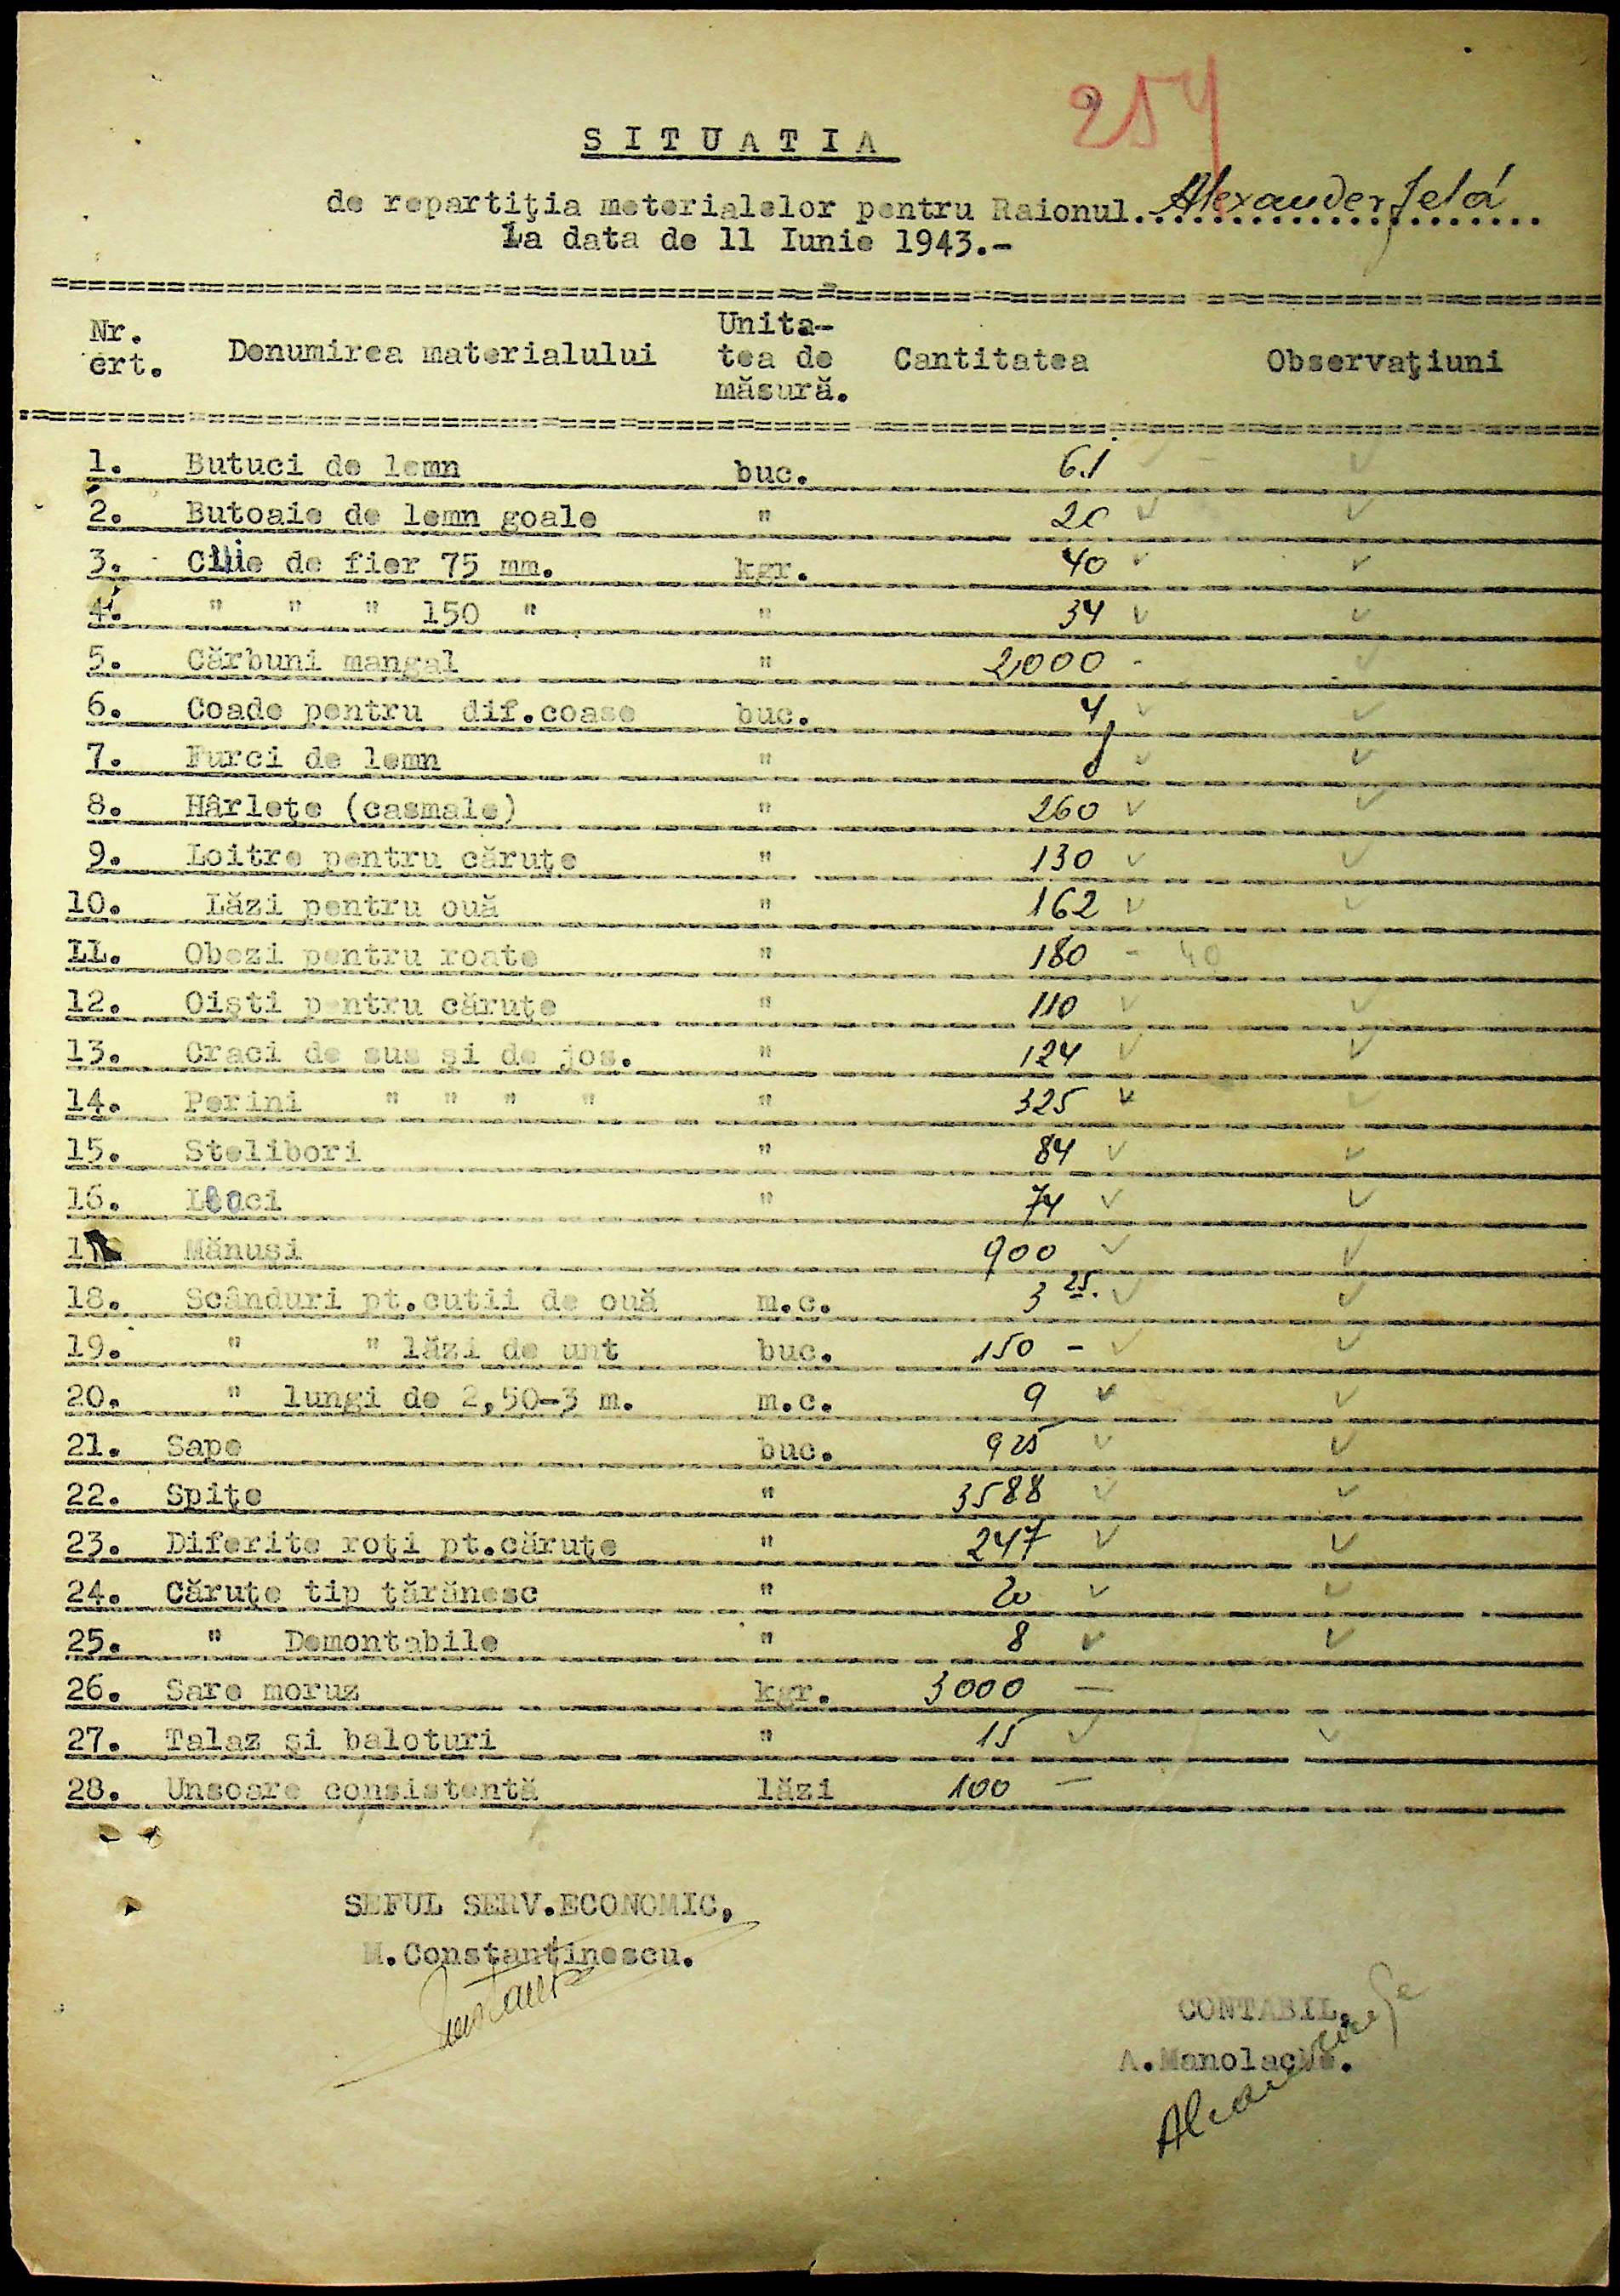 254
SITUATIA
de repartiţia meterialelor pentru Raionul Alexanderfeld
La data de 11 Iunie 1943.-
Nr. crt. Denumirea materialului Unita-tea de măsură. Cantitatea Observaţiuni
1. Butuci de lemn buc. 61 ✓ - ✓
2. Butoaie de lemn goale " 20 ✓ ✓
3. Cuie de fier 75 mm. kgr. 40 ✓ ✓
4. " " " 150 " " 34 ✓ ✓
5. Cărbuni mangal " 2000 - ✓
6. Coade pentru dif.coase buc. 4 ✓ ✓
7. Furci de lemn " ✓ ✓
8. Hârleţe (casmale) " 260 ✓ ✓
9. Loitre pentru căruţe " 130 ✓ ✓
10. Lăzi pentru ouă " 162 ✓ ✓
11. Obezi pentru roate " 180 - 40
12. Oişti pentru căruţe " 110 ✓ ✓
13. Craci de sus şi de jos. " 124 ✓ ✓
14. Perini " " " " " 325 ✓ ✓
15. Stelibori " 84 ✓ ✓
16. Leuci " 74 ✓ ✓
17. Mănuşi 900 ✓ ✓
18. Scânduri pt.cutii de ouă m.c. 3 25. ✓ ✓
19. " " lăzi de unt buc. 150 - ✓ ✓
20. " lungi de 2,50-3 m. m.c. 9 ✓ ✓
21. Sape buc. 925 ✓ ✓
22. Spiţe " 3588 ✓ ✓
23. Diferite roţi pt.căruţe " 247 ✓ ✓
24. Căruţe tip ţărănesc " 20 ✓ ✓
25. " Demontabile " 8 ✓ ✓
26. Sare moruz kgr. 3000 —
27. Talaz şi baloturi " 15 ✓ ✓
28. Unsoare consistentă lăzi 100 —
SEFUL SERV.ECONOMIC,
M.Constantinescu.
CONTABIL,
A.Manolache.